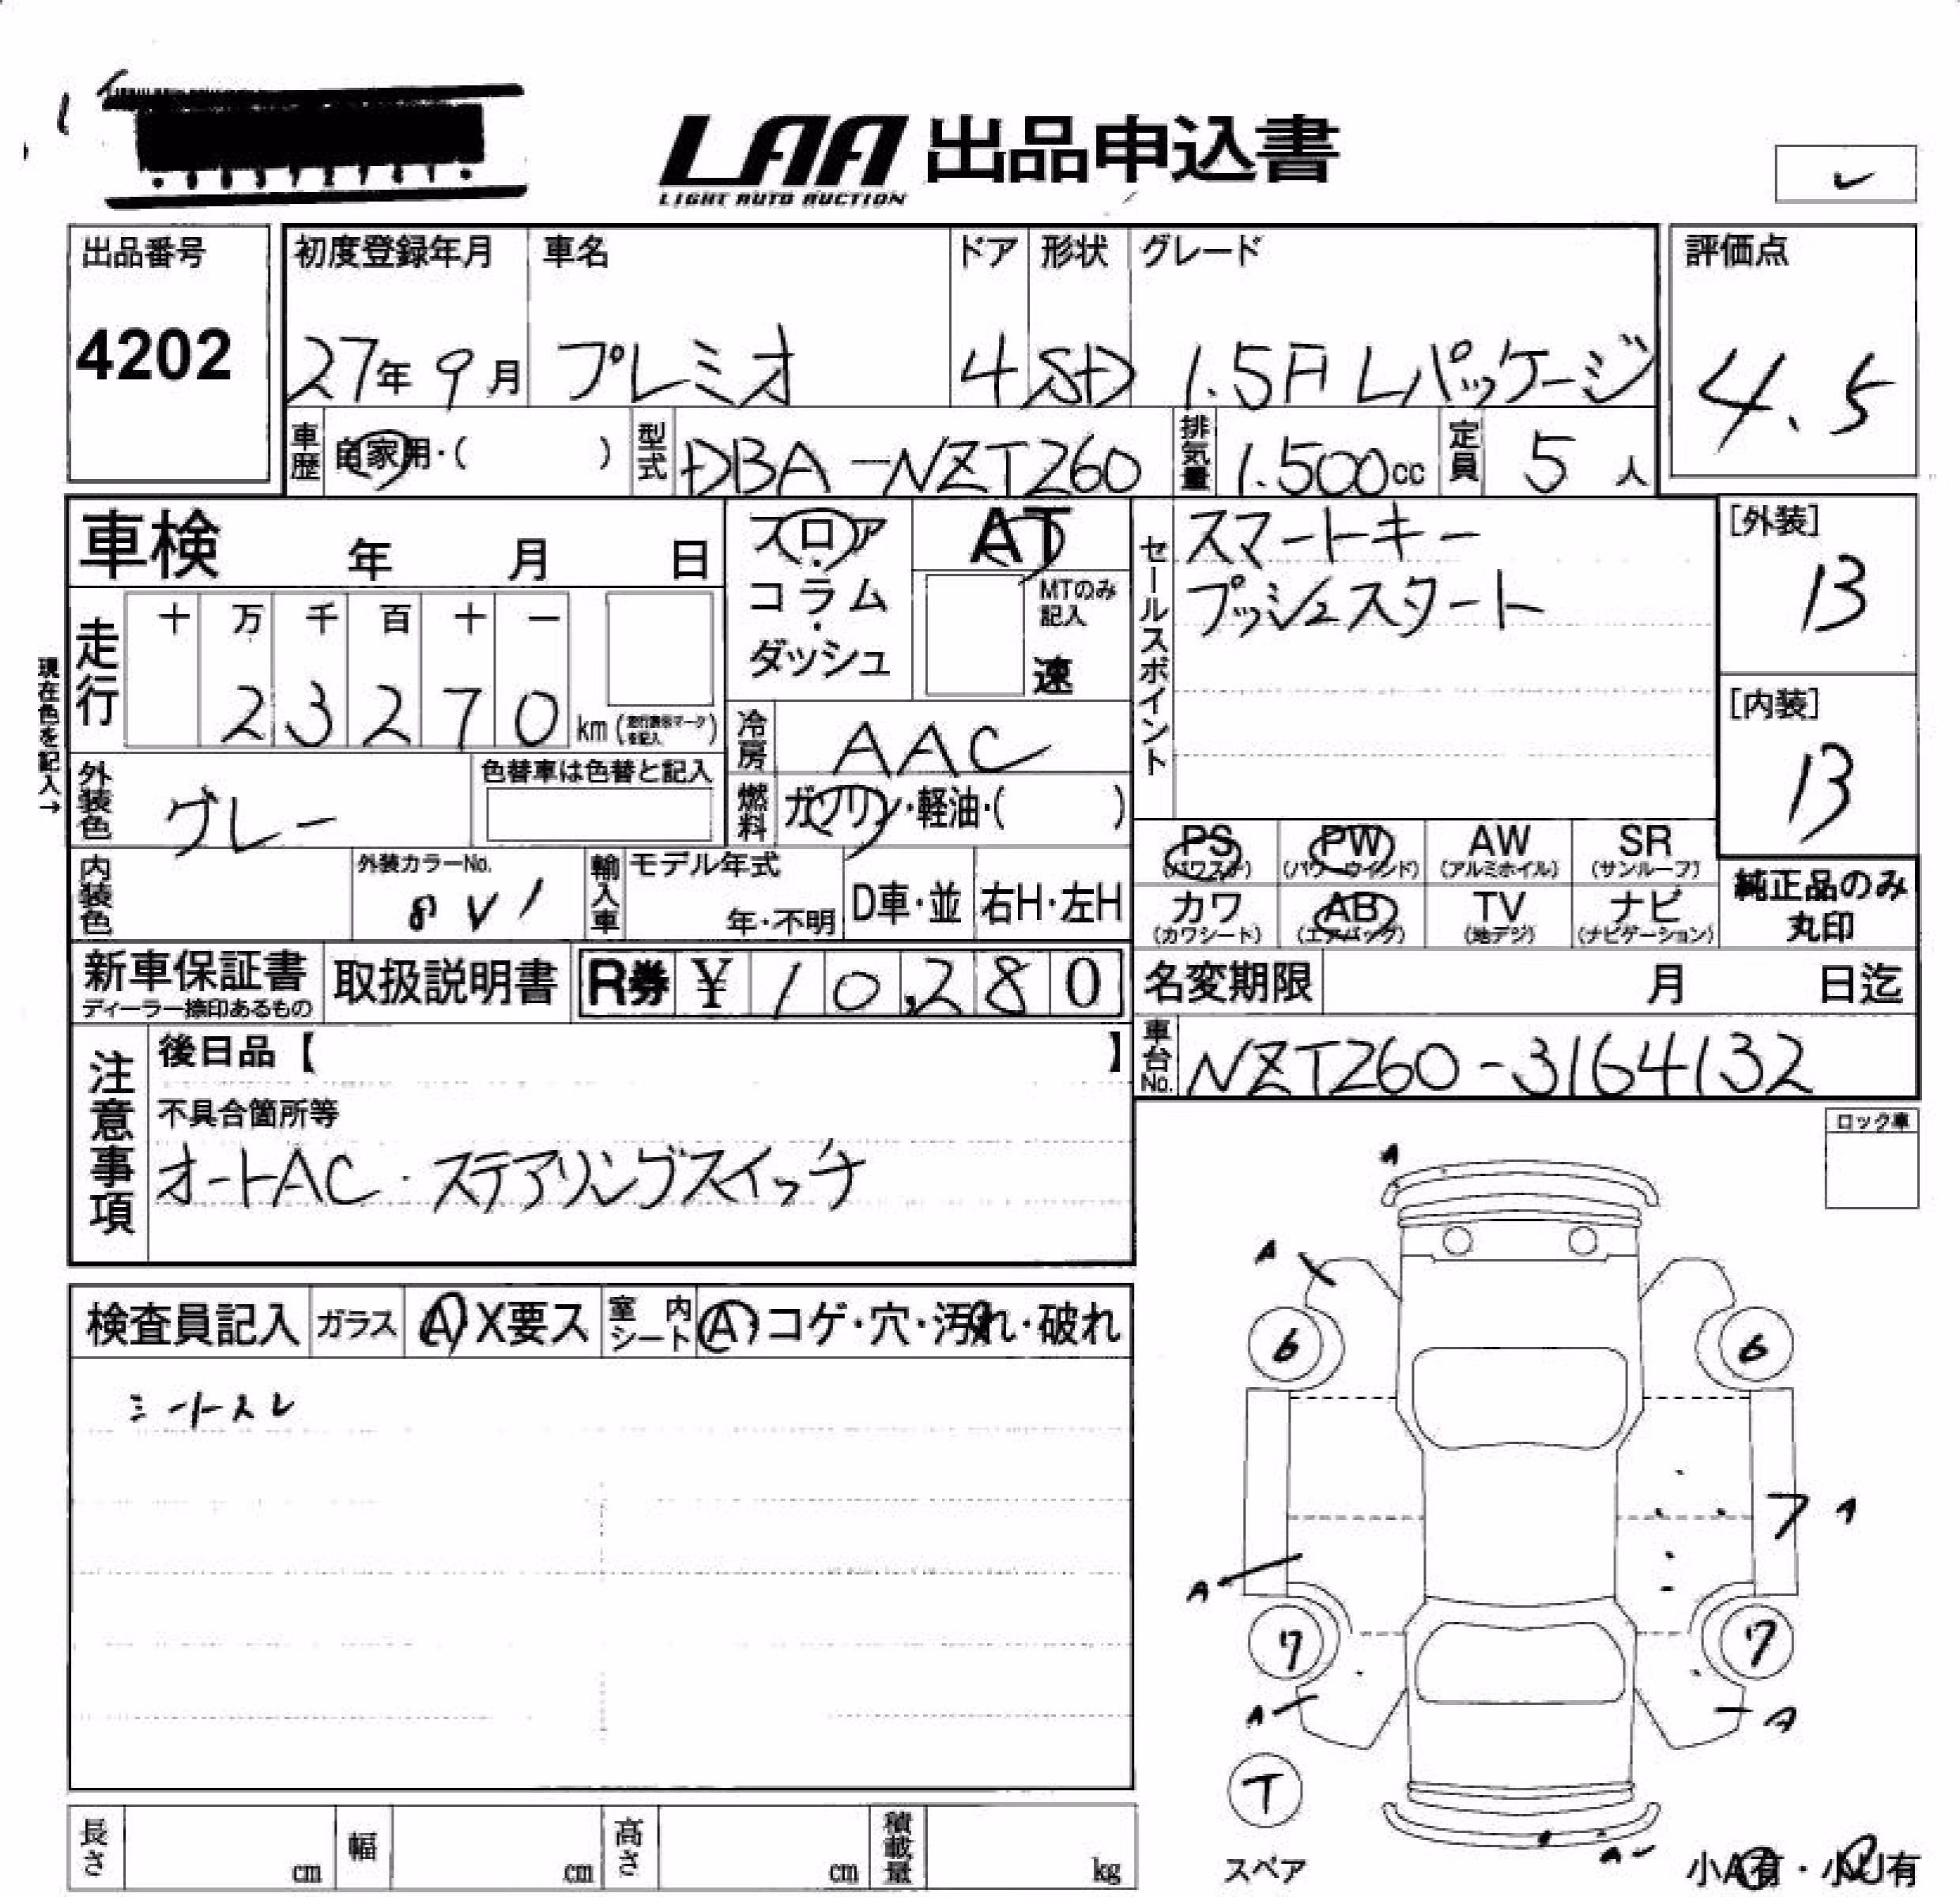 LAA 出品申込書
LIGHT AUTO AUCTION
出品番号
4202
初度登録年月
27年 9月
車名
プレミオ
ドア
4
形状
SD
グレード
1.5F Lパッケージ
評価点
4.5
車歴
自家用・( )
型式
DBA-NZT260
排気量
1.500cc
定員
5人
車検 年 月 日
フロア
・
コラム
・
ダッシュ
AT
MTのみ
記入
速
セールスポイント
スマートキー
プッシュスタート
[外装]
13
[内装]
13
現在色を記入→
走行
十 万 千 百 十 一
2 3 2 7 0 km
冷房
AAC
燃料
ガソリン・軽油・( )
外装色
グレー
色替車は色替と記入
内装色
外装カラーNo.
8V1
輸入車
モデル年式
年・不明
D車・並
右H・左H
PS
(パワステ)
PW
(パワーウインド)
AW
(アルミホイル)
SR
(サンルーフ)
カワ
(カワシート)
AB
(エアバッグ)
TV
(地デジ)
ナビ
(ナビゲーション)
純正品のみ
丸印
新車保証書
ディーラー捺印あるもの
取扱説明書
R券 ¥ 10,280
名変期限 月 日迄
車台No.
NZT260-3164132
注意事項
後日品【 】
不具合箇所等
オートAC・ステアリングスイッチ
ロック車
検査員記入
ガラス
A X要ス
室内シート
A コゲ・穴・汚れ・破れ
シートスレ
A
A
6
6
7
A
A
7
7
A
A
T
スペア
A
小A有・小U有
長さ cm
幅 cm
高さ cm
積載量 kg